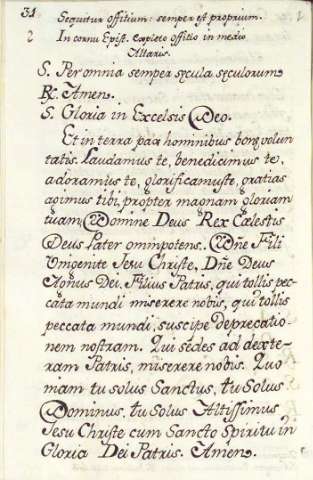 31 Sequitur offitium: semper est proprium.
2 In cornu Epist. Copleto offitio in medio
Altaris.
S. Per omnia semper sęcula sęculorum
R. Amen.
S. Gloria in Excelsis Deo.
Et in terra pax hominibus bonę volun
tatis. Laudamus te, benedicimus te,
adoramus te, glorificamuste, gratias
agimus tibi, propter magnam gloriam
tuam, Domine Deus Rex Cœlestis
Deus Pater omnipotens. Dñe Fili
Unigenite Jesu Christe, Dñe Deus
Agnus Dei. Filius Patris, qui tollis pec-
cata mundi miserere nobis, qui tollis
peccata mundi, suscipe deprecatio-
nem nostram. Qui sedes ad dexte-
ram Patris, miserere nobis. Quo
niam tu solus Sanctus, tu Solus
Dominus. tu Solus Altissimus
Jesu Christe cum Sancto Spiritu in
Gloria Dei Patris. Amen.